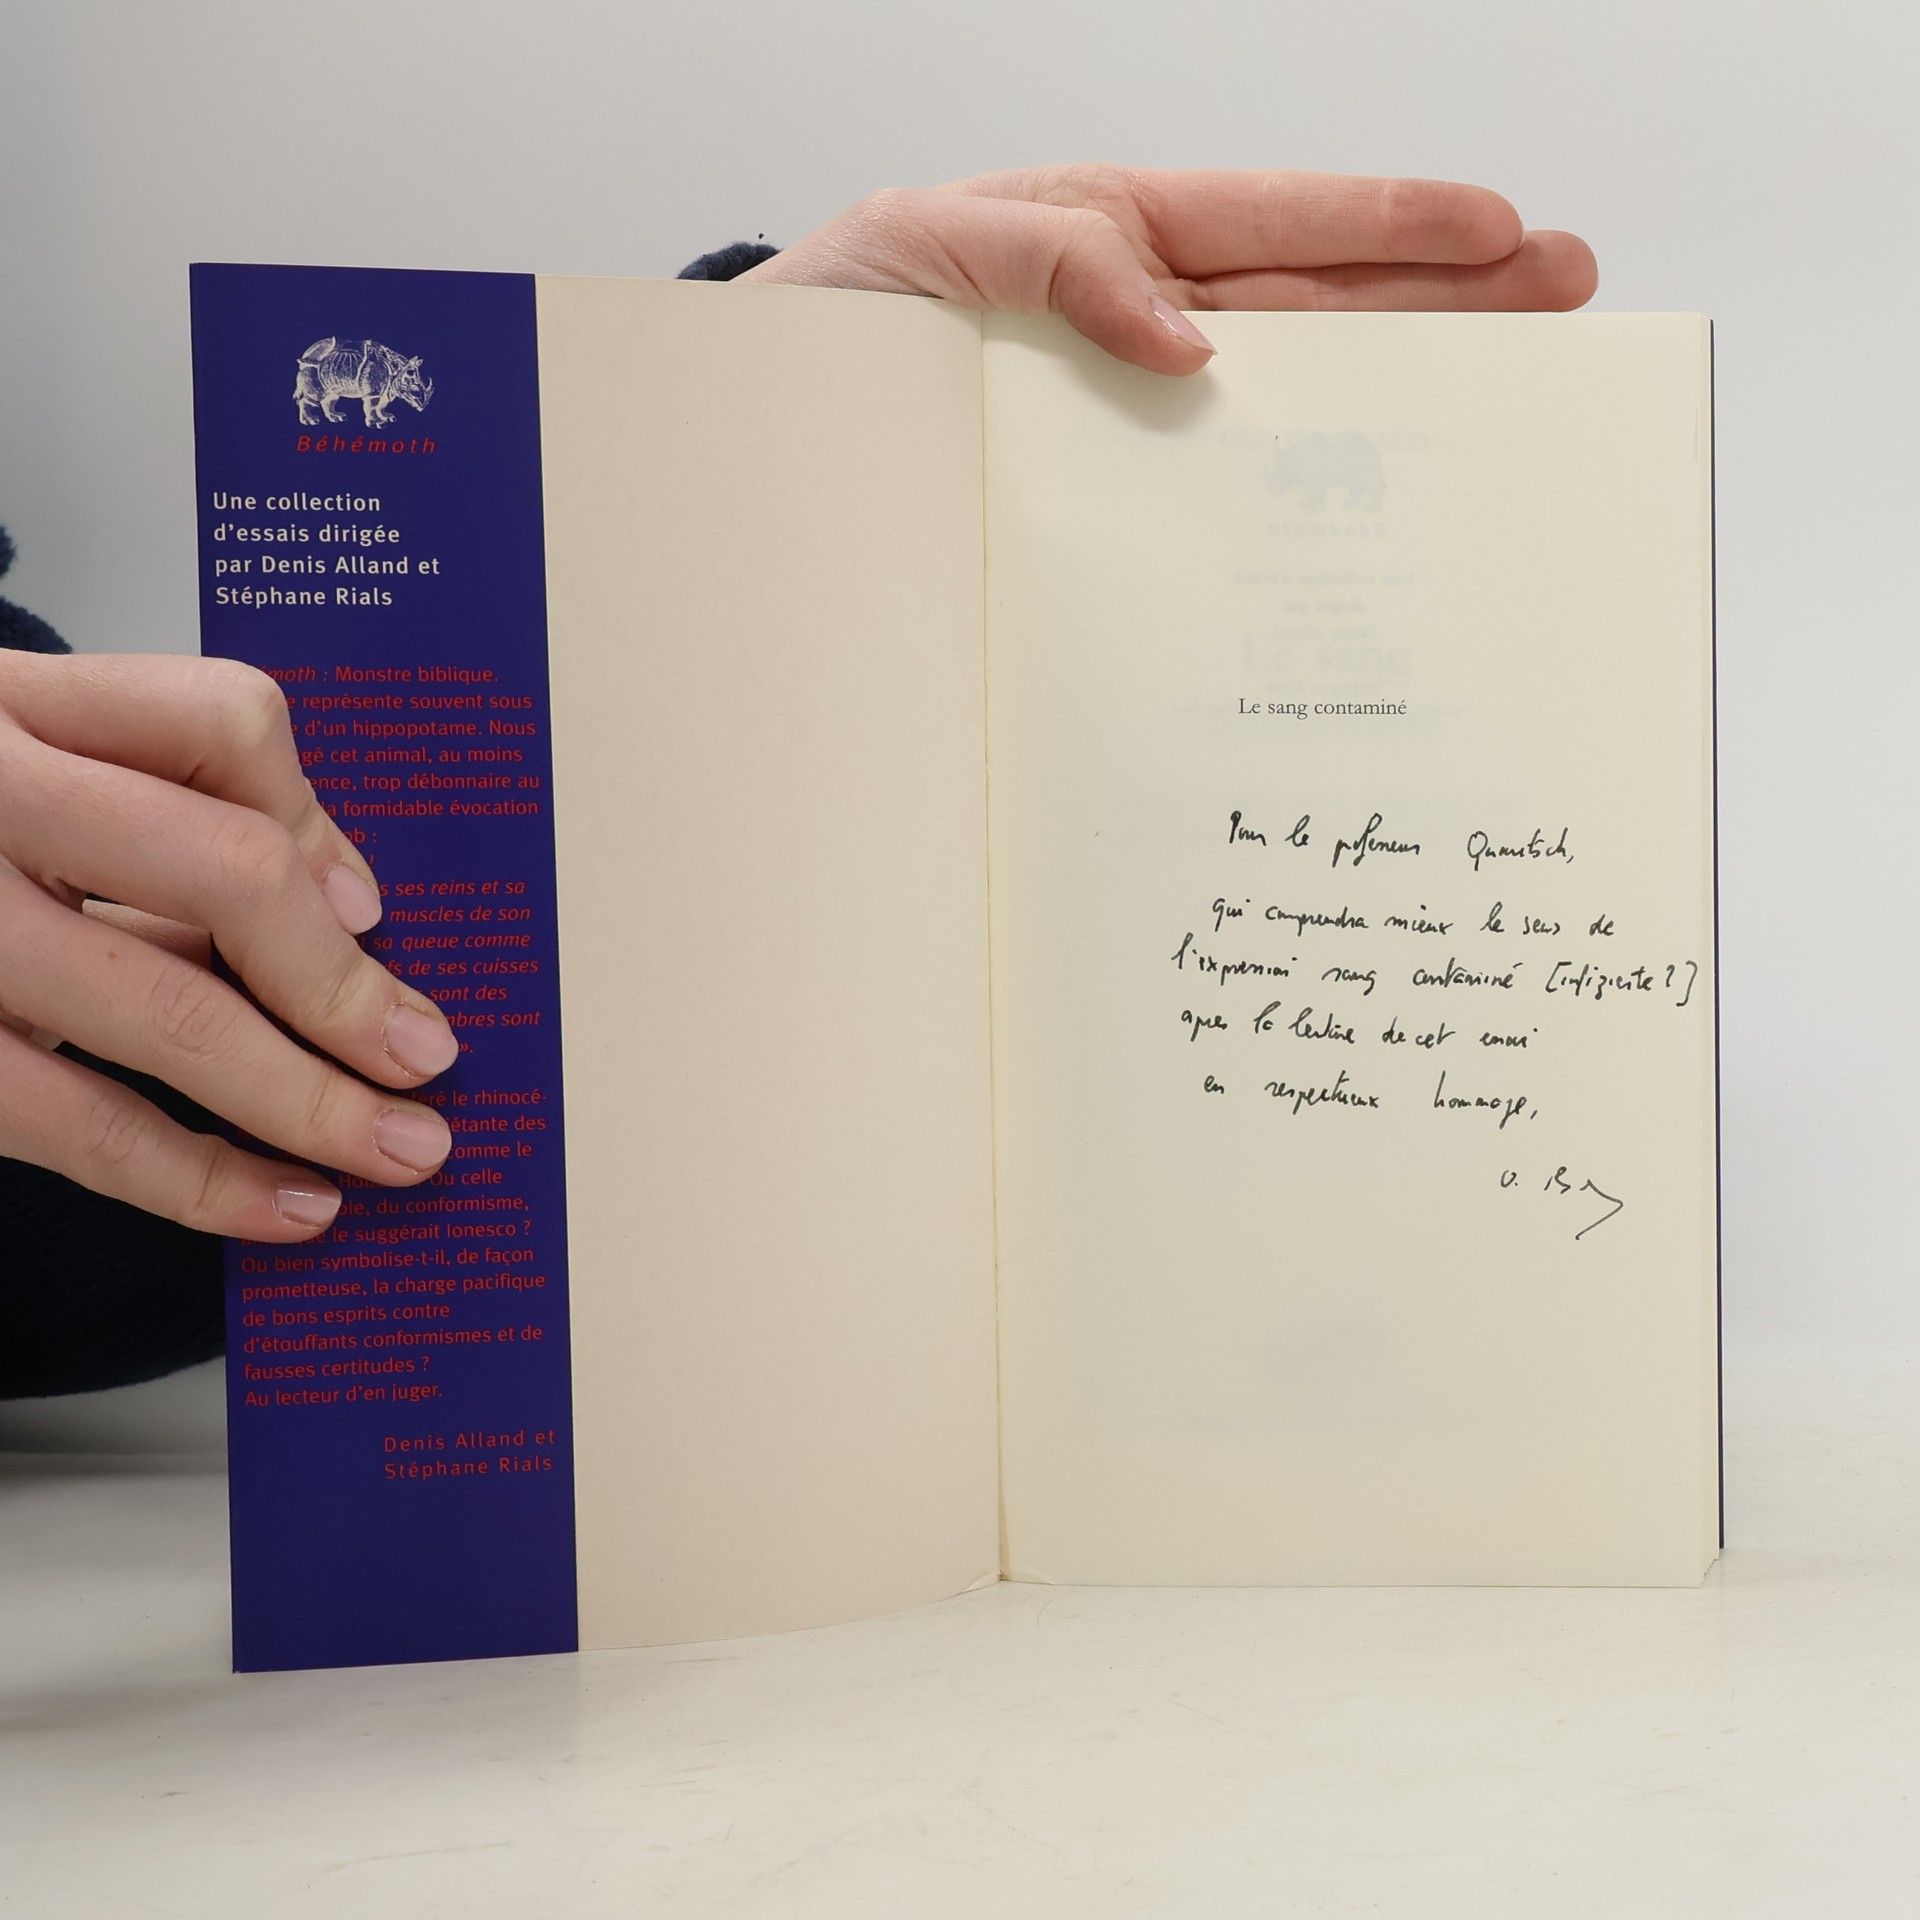 Béhémoth
Une collection
d'essais dirigée
par Denis Alland et
Stéphane Rials
moth : Monstre biblique.
représente souvent sous
d'un hippopotame. Nous
gé cet animal, au moins
ence, trop débonnaire au
la formidable évocation
ob :
!
s ses reins et sa
muscles de son
sa queue comme
fs de ses cuisses
sont des
mbres sont
».
féré le rhinocé-
étante des
comme le
Ou celle
ble, du conformisme,
le suggérait Ionesco ?
Ou bien symbolise-t-il, de façon
prometteuse, la charge pacifique
de bons esprits contre
d'étouffants conformismes et de
fausses certitudes ?
Au lecteur d'en juger.
Denis Alland et
Stéphane Rials
Le sang contaminé
Pour le professeur Quaritsch,
qui comprendra mieux le sens de
l'expression sang contaminé [infizierte ?]
après la lecture de cet essai
en respectueux hommage,
O. B